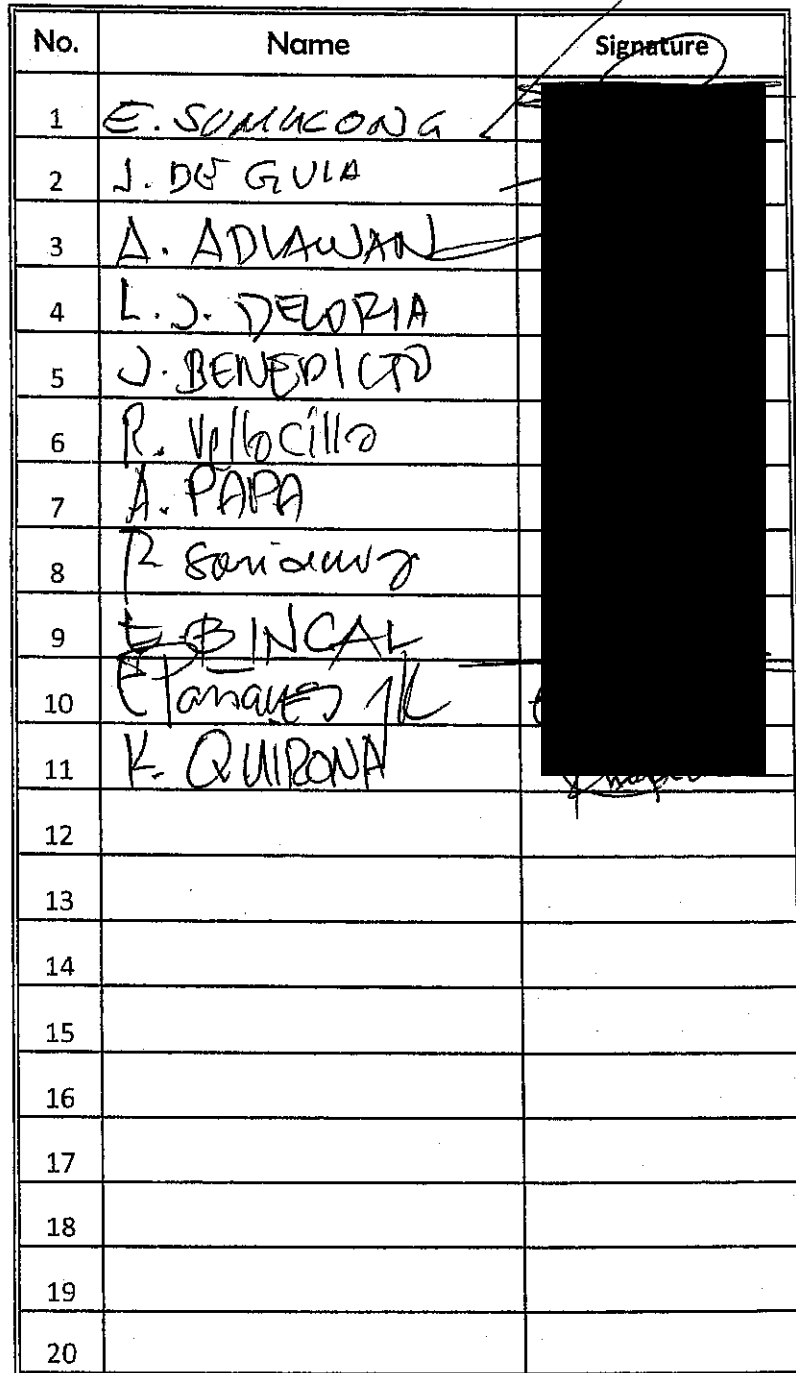 No. Name Signature
1 E. SUMUCONG
2 J. DE GUIA
3 A. ADLAWAN
4 L.J. DELORIA
5 J. BENEDICTO
6 R. Vellocillo
7 A. PAPA
8 R
9 E. BINCAL
10
11 K. QUIRONA
12
13
14
15
16
17
18
19
20